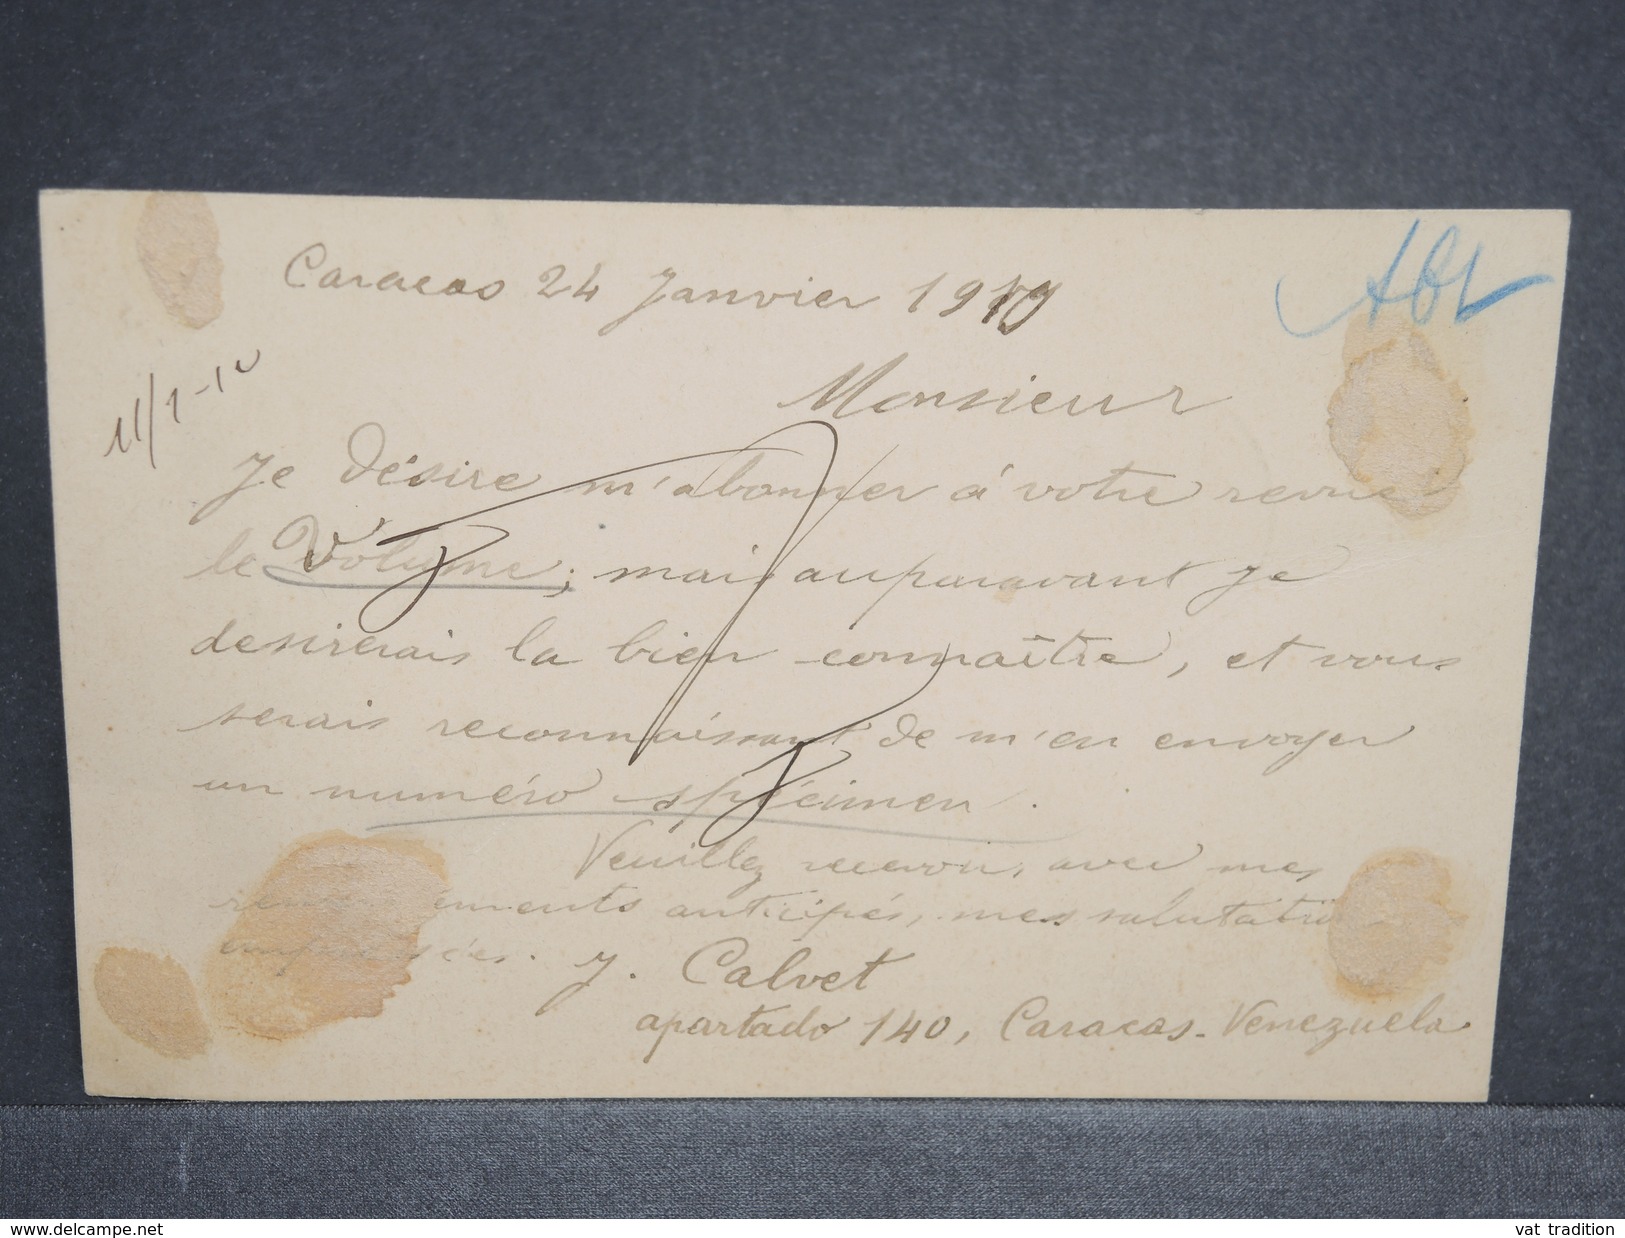 Caracas 24 Janvier 1910
11/2-10
Monsieur
Je désire m'abonner à votre revue
le Volume; mais auparavant je
desirerais la bien connaître, et vous
serais reconnaissant de m'en envoyer
un numéro spécimen.
Veuillez recevoir, avec mes
anticipés, mes salutations
J. Calvet
apartado 140, Caracas-Venezuela
www.delcampe.net
vat tradition